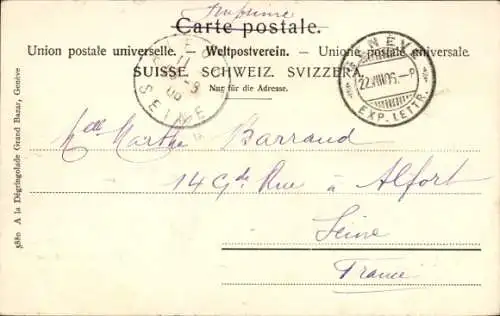 Imprimé
Carte postale.
Union postale universelle. — Weltpostverein. — Unione postale universale.
SUISSE. SCHWEIZ. SVIZZERA.
Nur für die Adresse.
GENÈVE
22.VIII.06.-8
EXP. LETTR.
SEINE
Melle Marthe Barraud
14 Gde Rue à Alfort
Seine
France
5880 A la Dégringolade Grand Bazar, Genève